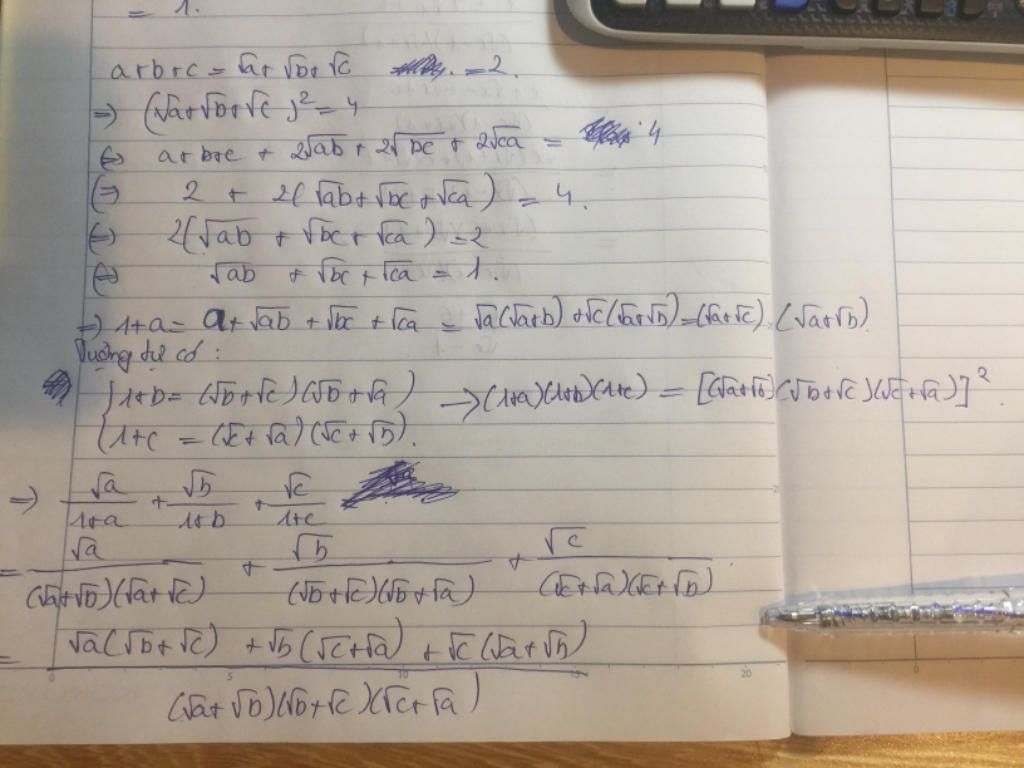 = 1.
a+b+c = √a + √b + √c = 2.
⇒ (√a+√b+√c)² = 4
⇔ a+b+c + 2√ab + 2√bc + 2√ca = 4
⇔ 2 + 2(√ab+√bc+√ca) = 4.
⇔ 2(√ab + √bc + √ca) = 2
⇔ √ab + √bc + √ca = 1.
⇒ 1+a = a+√ab+√bc+√ca = √a(√a+b)+√c(√a+√b)=(√a+√c).(√a+√b)
Tương tự có :
{1+b = (√b+√c)(√b+√a) → (1+a)(1+b)(1+c) = [(√a+√b)(√b+√c)(√c+√a)]²
{1+c = (√c+√a)(√c+√b).
⇒ √a/(1+a) + √b/(1+b) + √c/(1+c)
= √a/((√a+√b)(√a+√c)) + √b/((√b+√c)(√b+√a)) + √c/((√c+√a)(√c+√b))
= (√a(√b+√c) + √b(√c+√a) + √c(√a+√b))/((√a+√b)(√b+√c)(√c+√a))
0 5 10 15 20 0